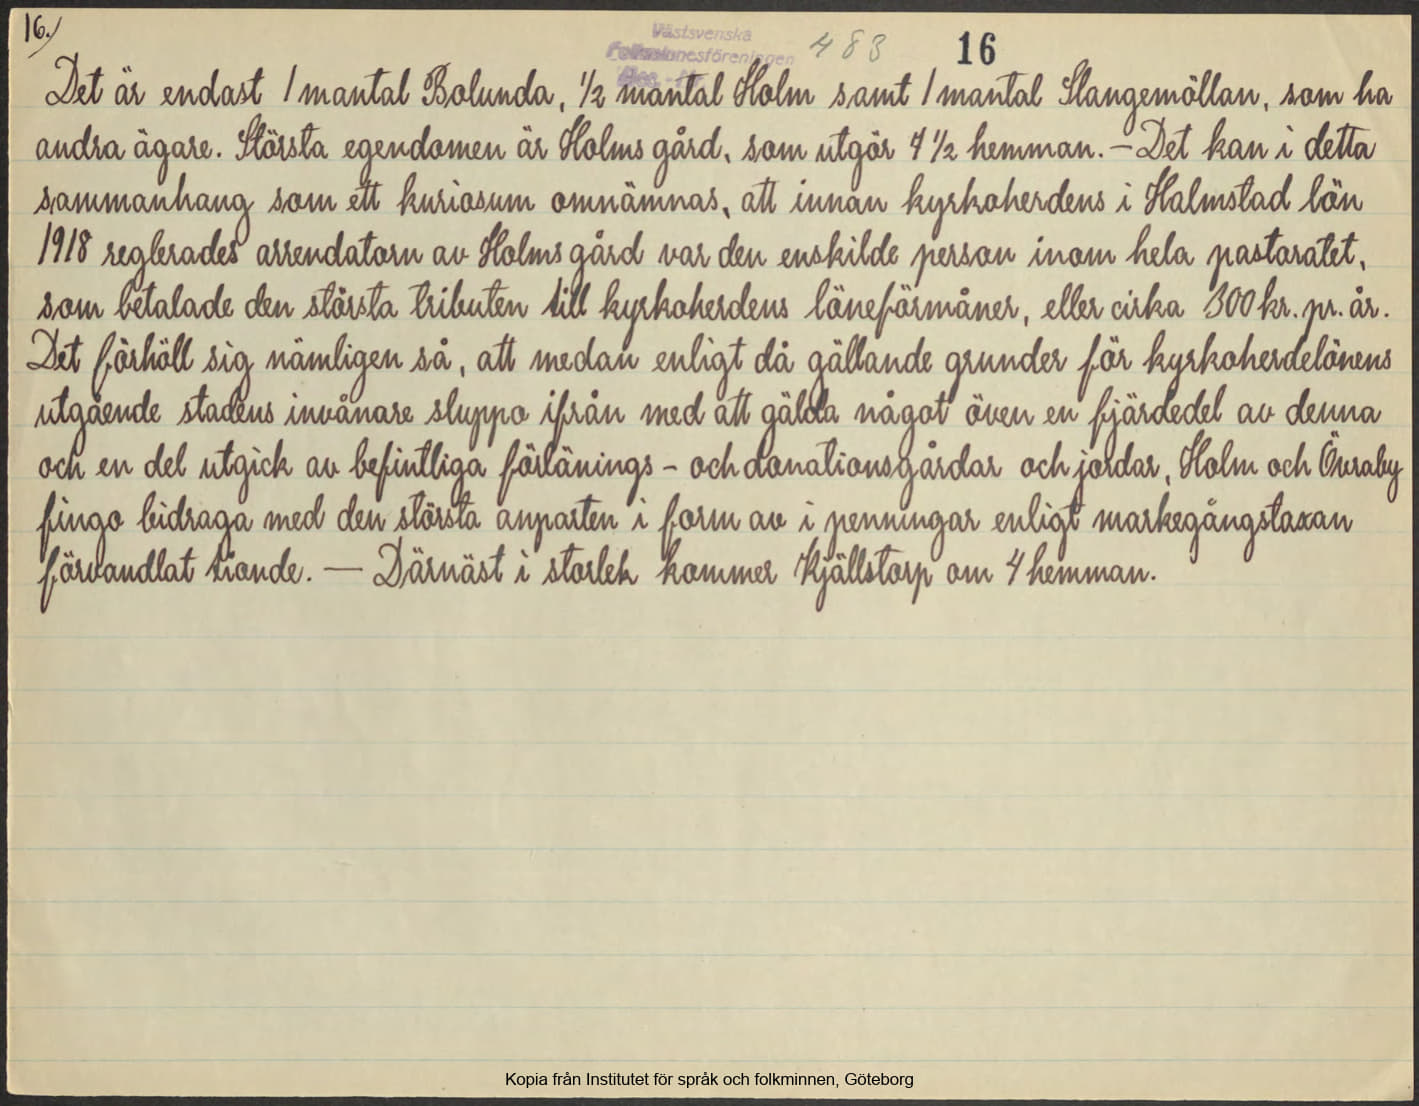 16.)
Västsvenska
Folkminnesföreningen
483
16
Det är endast 1 mantal Bolunda, 1/2 mantal Holm samt 1 mantal Slangemöllan, som ha
andra ägare. Största egendomen är Holms gård, som utgör 4 1/2 hemman. — Det kan i detta
sammanhang som ett kuriosum omnämnas, att innan kyrkoherdens i Halmstad lön
1918 reglerades arrendatorn av Holms gård var den enskilde person inom hela pastoratet,
som betalade den största tributen till kyrkoherdens löneförmåner, eller cirka 300 kr. pr. år.
Det förhöll sig nämligen så, att medan enligt då gällande grunder för kyrkoherdelönens
utgående stadens invånare sluppo ifrån med att gälda något över en fjärdedel av denna
och en del utgick av befintliga förlänings- och donationsgårdar och jordar, Holm och Övraby
fingo bidraga med den största anparten i form av i penningar enligt markegångstaxan
förvandlat tionde. — Därnäst i storlek kommer Kjällstorp om 4 hemman.
Kopia från Institutet för språk och folkminnen, Göteborg